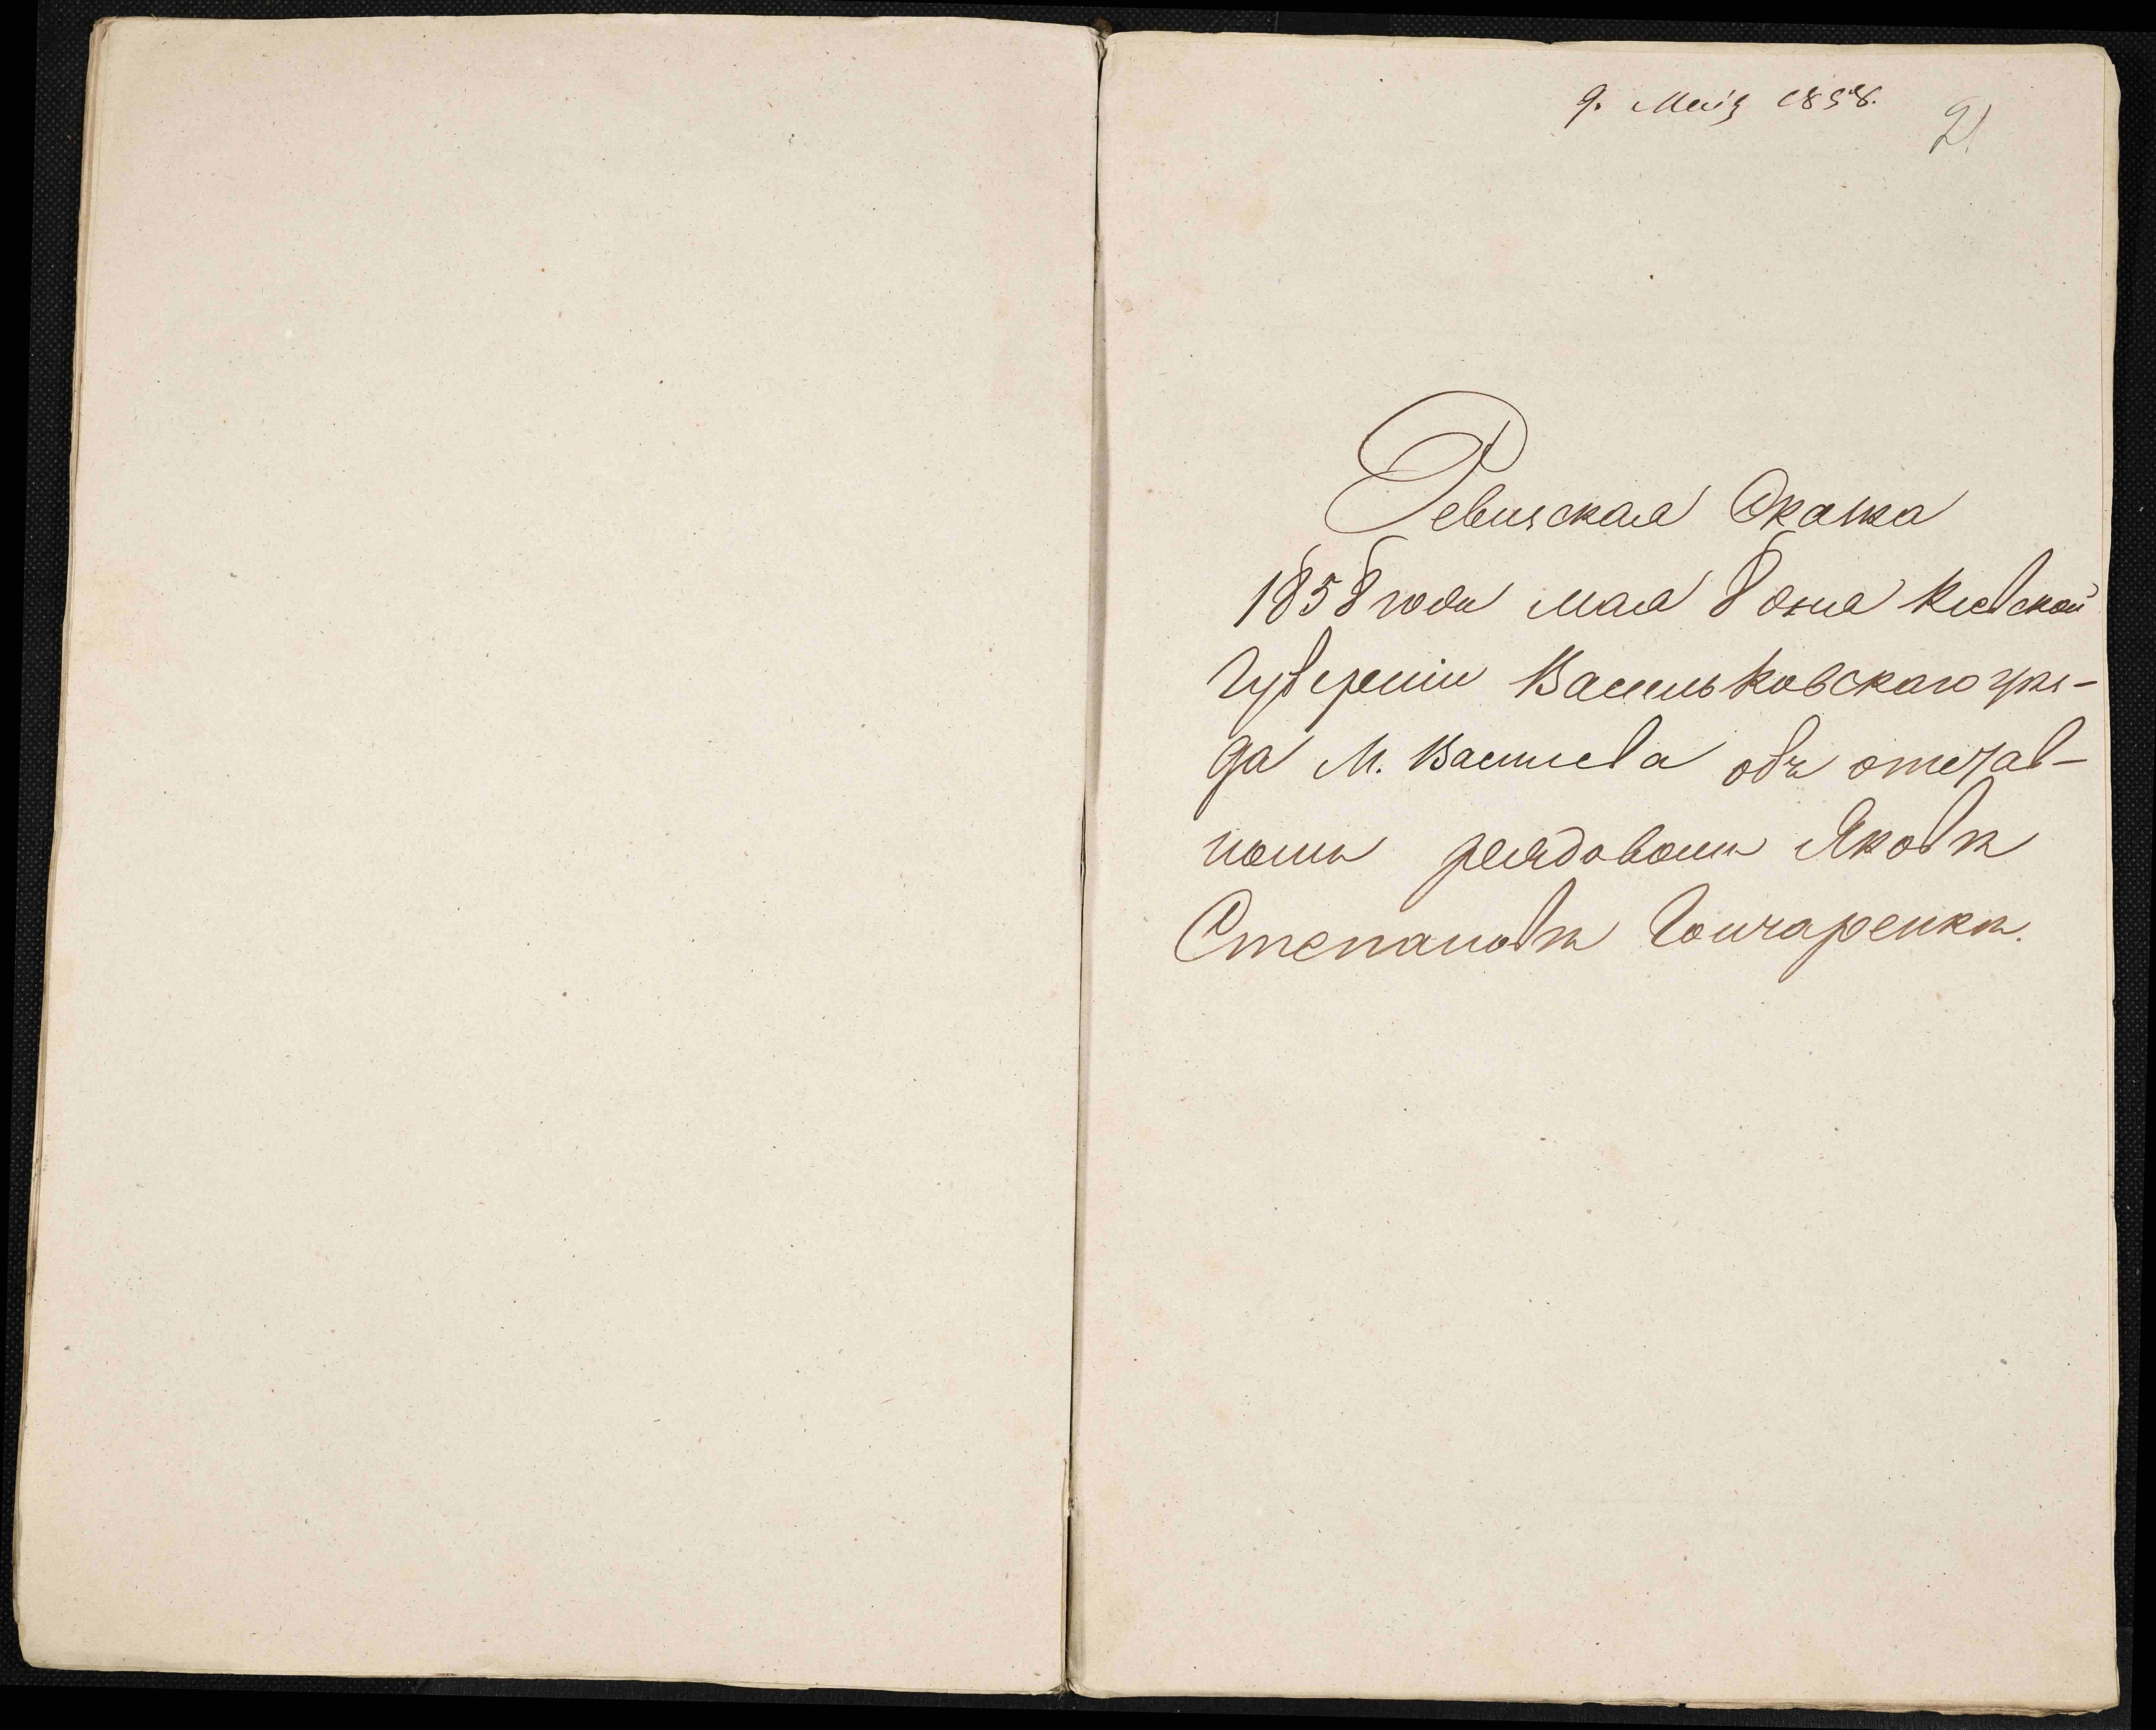 9. Мая 1858.
2
Ревизская Сказка
1858 года мая 8 дня Кіевской
Губерніи Васильковскаго уѣз-
да М. Василева объ отстав-
номъ рядовомъ Яковѣ
Степановѣ Гончаренкѣ.